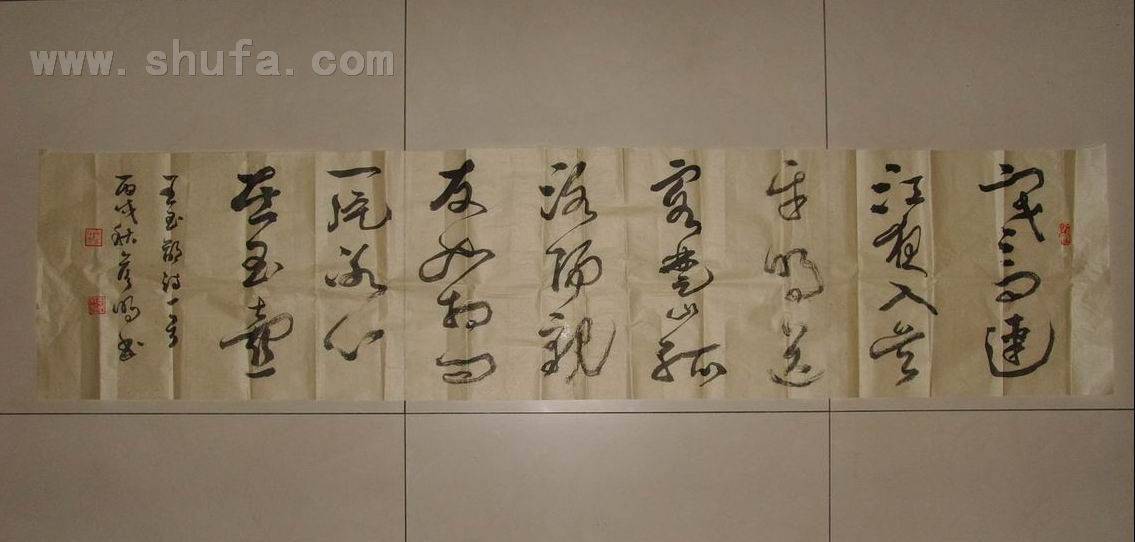 www.shufa.com
寒雨連
江夜入吴
平明送
客楚山孤
洛陽親
友如相问
一片冰心
在玉壶
王昌龄诗一首
丙戌秋书